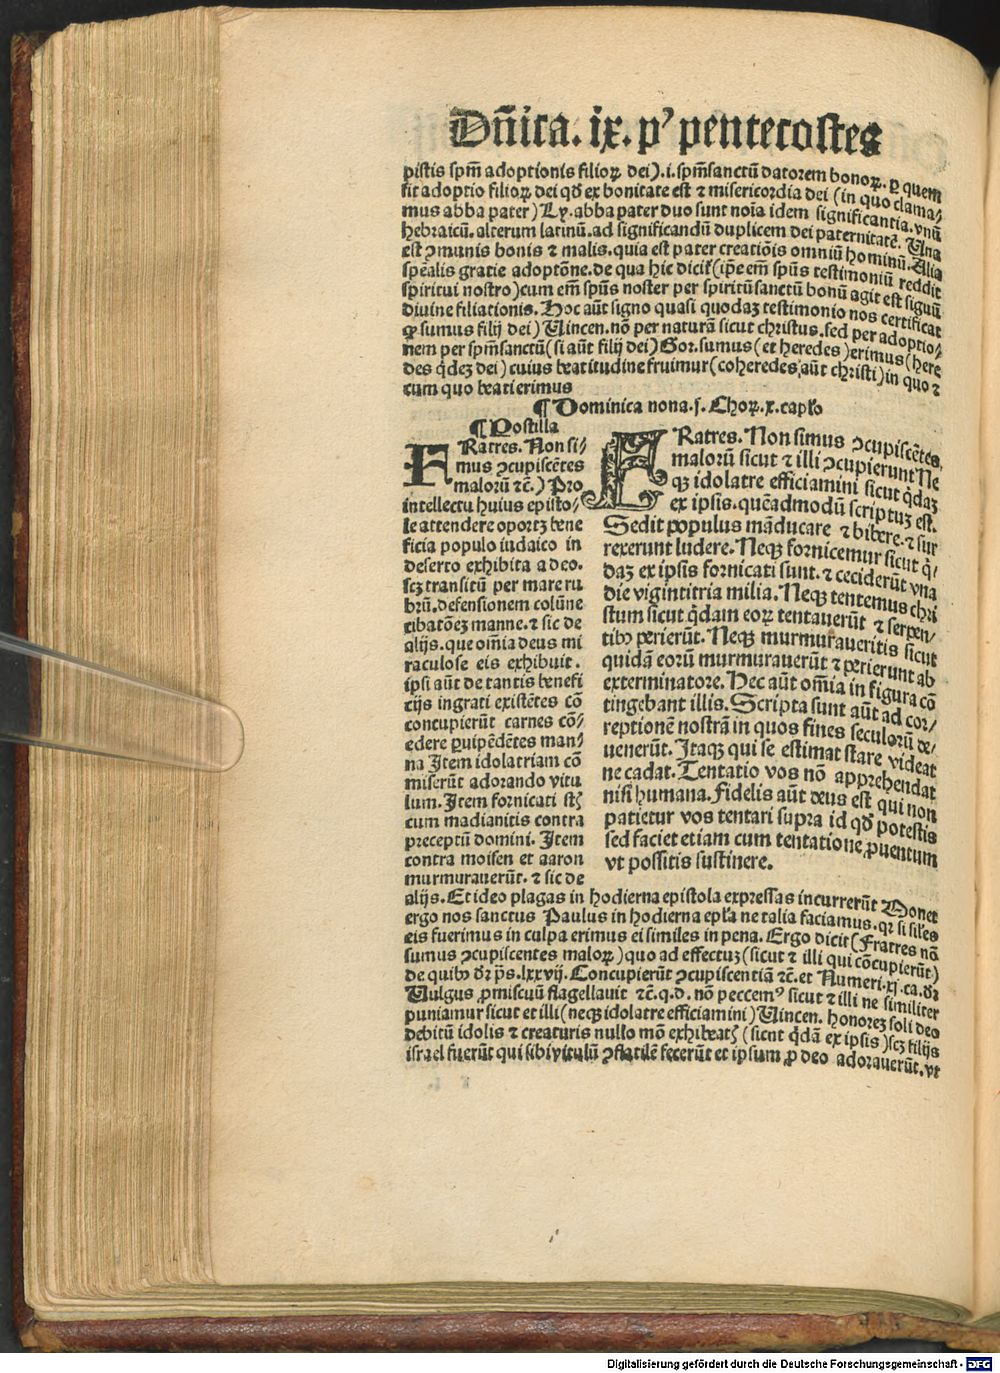 Dñica. ix. p̕ pentecostes
pistis spm̃ adoptionis filioꝝ dei).i. spm̃sanctũ datorem bonoꝝ. ꝑ quem
fit adoptio filioꝝ dei qď ex bonitate est ⁊ misericordia dei (in quo clama⸗
mus abba pater) Ly. abba pater duo sunt noĩa idem significantia. vnũ
hebraicũ. alterum latinũ. ad significandũ duplicem dei paternitatẽ. Una
est ꝯmunis bonis ⁊ malis. quia est pater creatiõis omniũ hominũ. Alia
spẽalis gratie adoptõne. de qua hic dicit᷑ (ip̃e em̃ spũs testimoniũ reddit
spiritui nostro) cum em̃ spũs noster per spiritũsanctũ bonũ agit est signũ
diuine filiationis. Hoc aũt signo quasi quodaʒ testimonio nos certificat
ꝙ sumus filij dei) Uincen. nõ per naturã sicut christus. sed per adoptio⸗
nem per spm̃sanctũ (si aũt filij dei) Gor. sumus (et heredes) erimus (here
des q̃deʒ dei) cuius beatitudine fruimur (coheredes aũt christi) in quo ⁊
cum quo beati erimus
¶ Dominica nona. j. Choꝝ. x. capl̃o
¶ Postilla
FRatres. Non si⸗
mus ꝯcupiscẽtes
malorũ ⁊c̃.) Pro
intellectu huius episto⸗
le attendere oportʒ bene
ficia populo iudaico in
deserto exhibita a deo.
scʒ transitũ per mare ru
brũ. defensionem colũne
cibatõeʒ manne. ⁊ sic de
alijs. que om̃ia deus mi
raculose eis exhibuit.
ipsi aũt de tantis benefi
cijs ingrati existẽtes cõ
concupierũt carnes cõ⸗
edere ꝑuipẽdẽtes man⸗
na Item idolatriam cõ
miserũt adorando vitu
lum. Item fornicati st̃
cum madianitis contra
preceptũ domini. Item
contra moisen et aaron
murmurauerũt. ⁊ sic de
FRatres. Non simus ꝯcupiscẽtes
malorũ sicut ⁊ illi ꝯcupierunt Ne
qʒ idolatre efficiamini sicut q̃daʒ
ex ipsis. quẽadmodũ scriptuʒ est.
Sedit populus mãducare ⁊ bibere. ⁊ sur
rexerunt ludere. Neqʒ fornicemur sicut q̃⸗
daʒ ex ipsis fornicati sunt. ⁊ ceciderũt vna
die vigintitria milia. Neqʒ tentemus chri
stum sicut q̃dam eoꝝ tentauerũt ⁊ serpen⸗
tibꝰ perierũt. Neqʒ murmuraueritis sicut
quidã eorũ murmurauerũt ⁊ perierunt ab
exterminatore. Hec aũt om̃ia in figura cõ
tingebant illis. Scripta sunt aũt ad cor⸗
reptionẽ nostrã in quos fines seculorũ de⸗
uenerũt. Itaqʒ qui se estimat stare videat
ne cadat. Tentatio vos nõ apprehendat
nisi humana. Fidelis aũt deus est qui non
patietur vos tentari supra id qď potestis
sed faciet etiam cum tentatione ꝓuentum
vt possitis sustinere.
alijs. Et ideo plagas in hodierna epistola expressas incurrerũt Monet
ergo nos sanctus Paulus in hodierna epl̃a ne talia faciamus. qꝛ si sil̃es
eis fuerimus in culpa erimus ei similes in pena. Ergo dicit (Fratres nõ
sumus ꝯcupiscentes maloꝝ) quo ad effectuʒ (sicut ⁊ illi qui cõcupierũt)
de quibꝰ dr̃ p̃s. lxxvij. Concupierũt ꝯcupiscentiã ⁊c̃. et Numeri. xj. ca. dr̃
Uulgus ꝓmiscuũ flagellauit ⁊c̃. q. d. nõ peccemꝰ sicut ⁊ illi ne similiter
puniamur sicut et illi (neqʒ idolatre efficiamini) Uincen. honoreʒ soli deo
debitũ idolis ⁊ creaturis nullo mõ exhibeat᷑ (sicut q̃dã ex ipsis) scʒ filijs
israel fuerũt qui sibi vitulũ ꝯflatilẽ fecerũt et ipsum ꝓ deo adorauerũt. vt
Digitalisierung gefördert durch die Deutsche Forschungsgemeinschaft - DFG